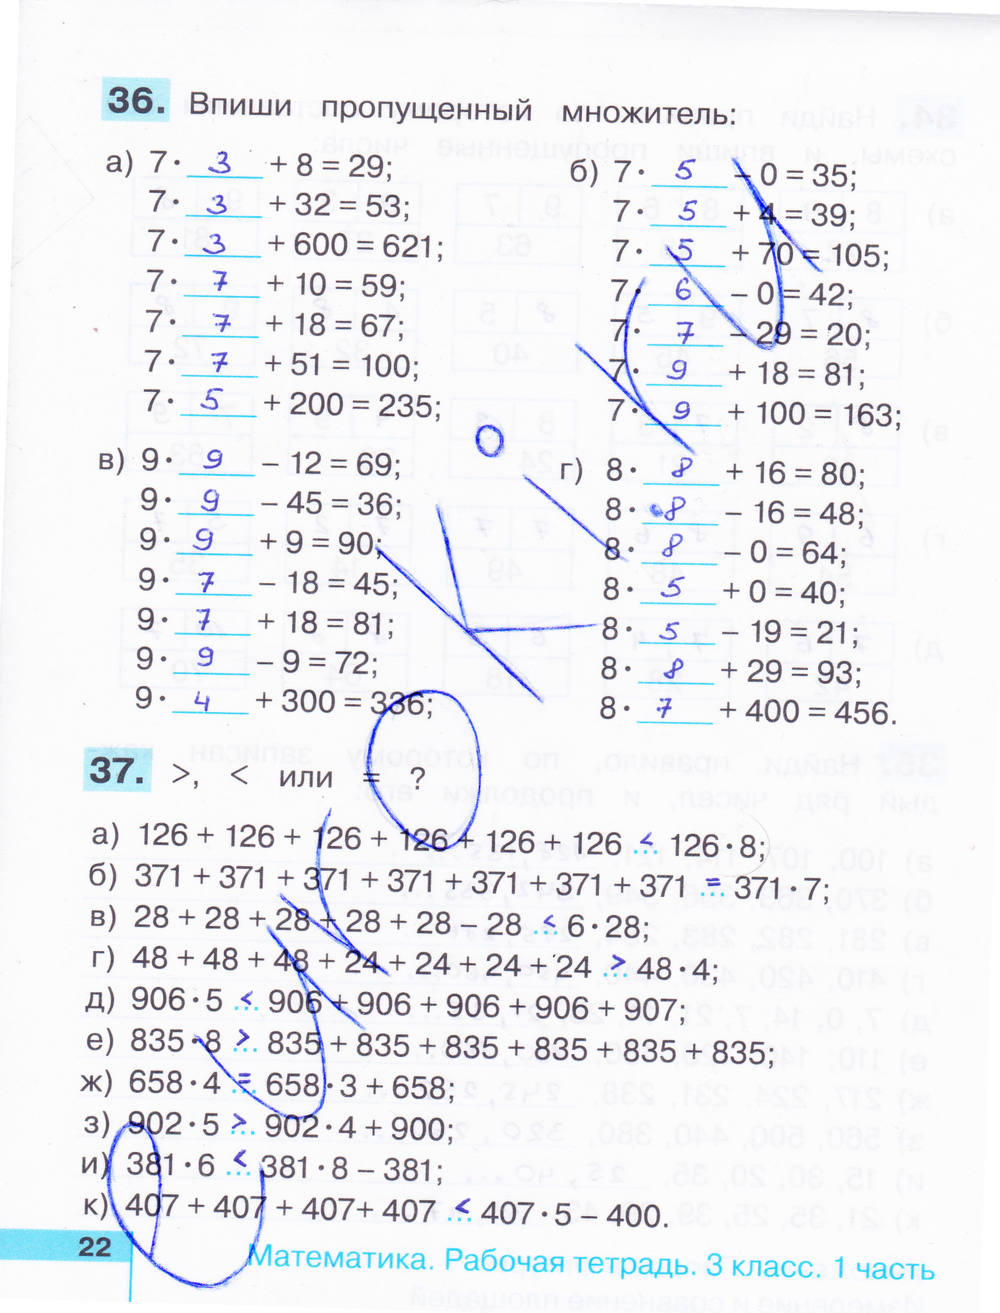 36. Впиши пропущенный множитель:
а) 7 · 3 + 8 = 29;
7 · 3 + 32 = 53;
7 · 3 + 600 = 621;
7 · 7 + 10 = 59;
7 · 7 + 18 = 67;
7 · 7 + 51 = 100;
7 · 5 + 200 = 235;
б) 7 · 5 – 0 = 35;
7 · 5 + 4 = 39;
7 · 5 + 70 = 105;
7 · 6 – 0 = 42;
7 · 7 – 29 = 20;
7 · 9 + 18 = 81;
7 · 9 + 100 = 163;
в) 9 · 9 – 12 = 69;
9 · 9 – 45 = 36;
9 · 9 + 9 = 90;
9 · 7 – 18 = 45;
9 · 7 + 18 = 81;
9 · 9 – 9 = 72;
9 · 4 + 300 = 336;
г) 8 · 8 + 16 = 80;
8 · 8 – 16 = 48;
8 · 8 – 0 = 64;
8 · 5 + 0 = 40;
8 · 5 – 19 = 21;
8 · 8 + 29 = 93;
8 · 7 + 400 = 456.
37. >, < или = ?
а) 126 + 126 + 126 + 126 + 126 + 126 < 126 · 8;
б) 371 + 371 + 371 + 371 + 371 + 371 + 371 = 371 · 7;
в) 28 + 28 + 28 + 28 + 28 – 28 < 6 · 28;
г) 48 + 48 + 48 + 24 + 24 + 24 + 24 > 48 · 4;
д) 906 · 5 < 906 + 906 + 906 + 906 + 907;
е) 835 · 8 > 835 + 835 + 835 + 835 + 835 + 835;
ж) 658 · 4 = 658 · 3 + 658;
з) 902 · 5 > 902 · 4 + 900;
и) 381 · 6 < 381 · 8 – 381;
к) 407 + 407 + 407 + 407 < 407 · 5 – 400.
22
Математика. Рабочая тетрадь. 3 класс. 1 часть